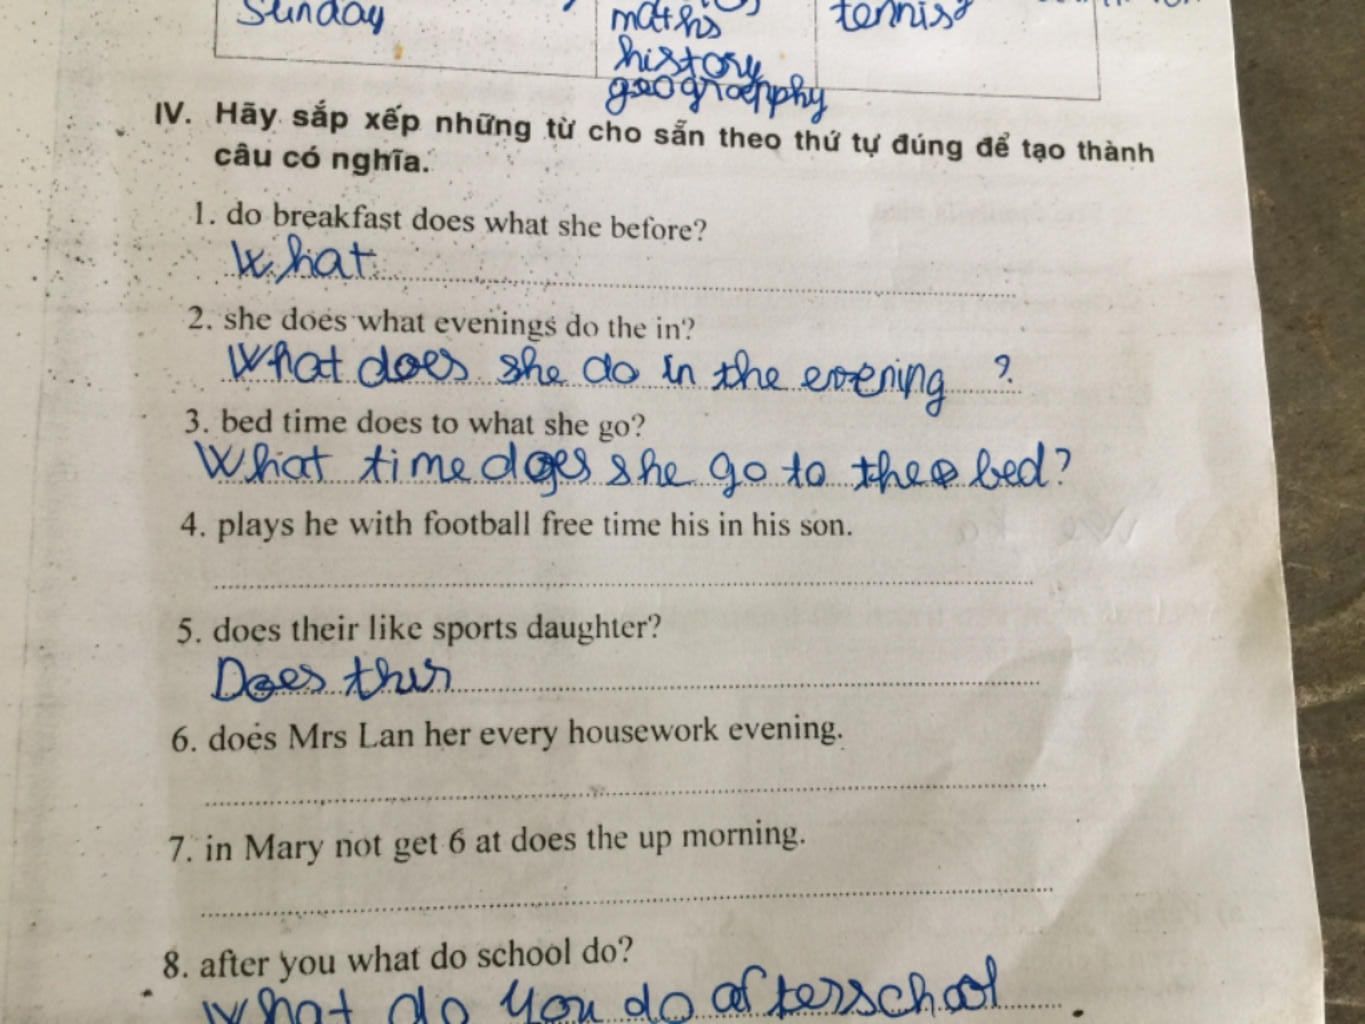 Sunday
maths
tennis
history
geography
IV. Hãy sắp xếp những từ cho sẵn theo thứ tự đúng để tạo thành
câu có nghĩa.
1. do breakfast does what she before?
What
2. she does what evenings do the in?
What does she do in the evening ?
3. bed time does to what she go?
What time does she go to the bed?
4. plays he with football free time his in his son.
5. does their like sports daughter?
Does
6. does Mrs Lan her every housework evening.
7. in Mary not get 6 at does the up morning.
8. after you what do school do?
What do you do afterschool